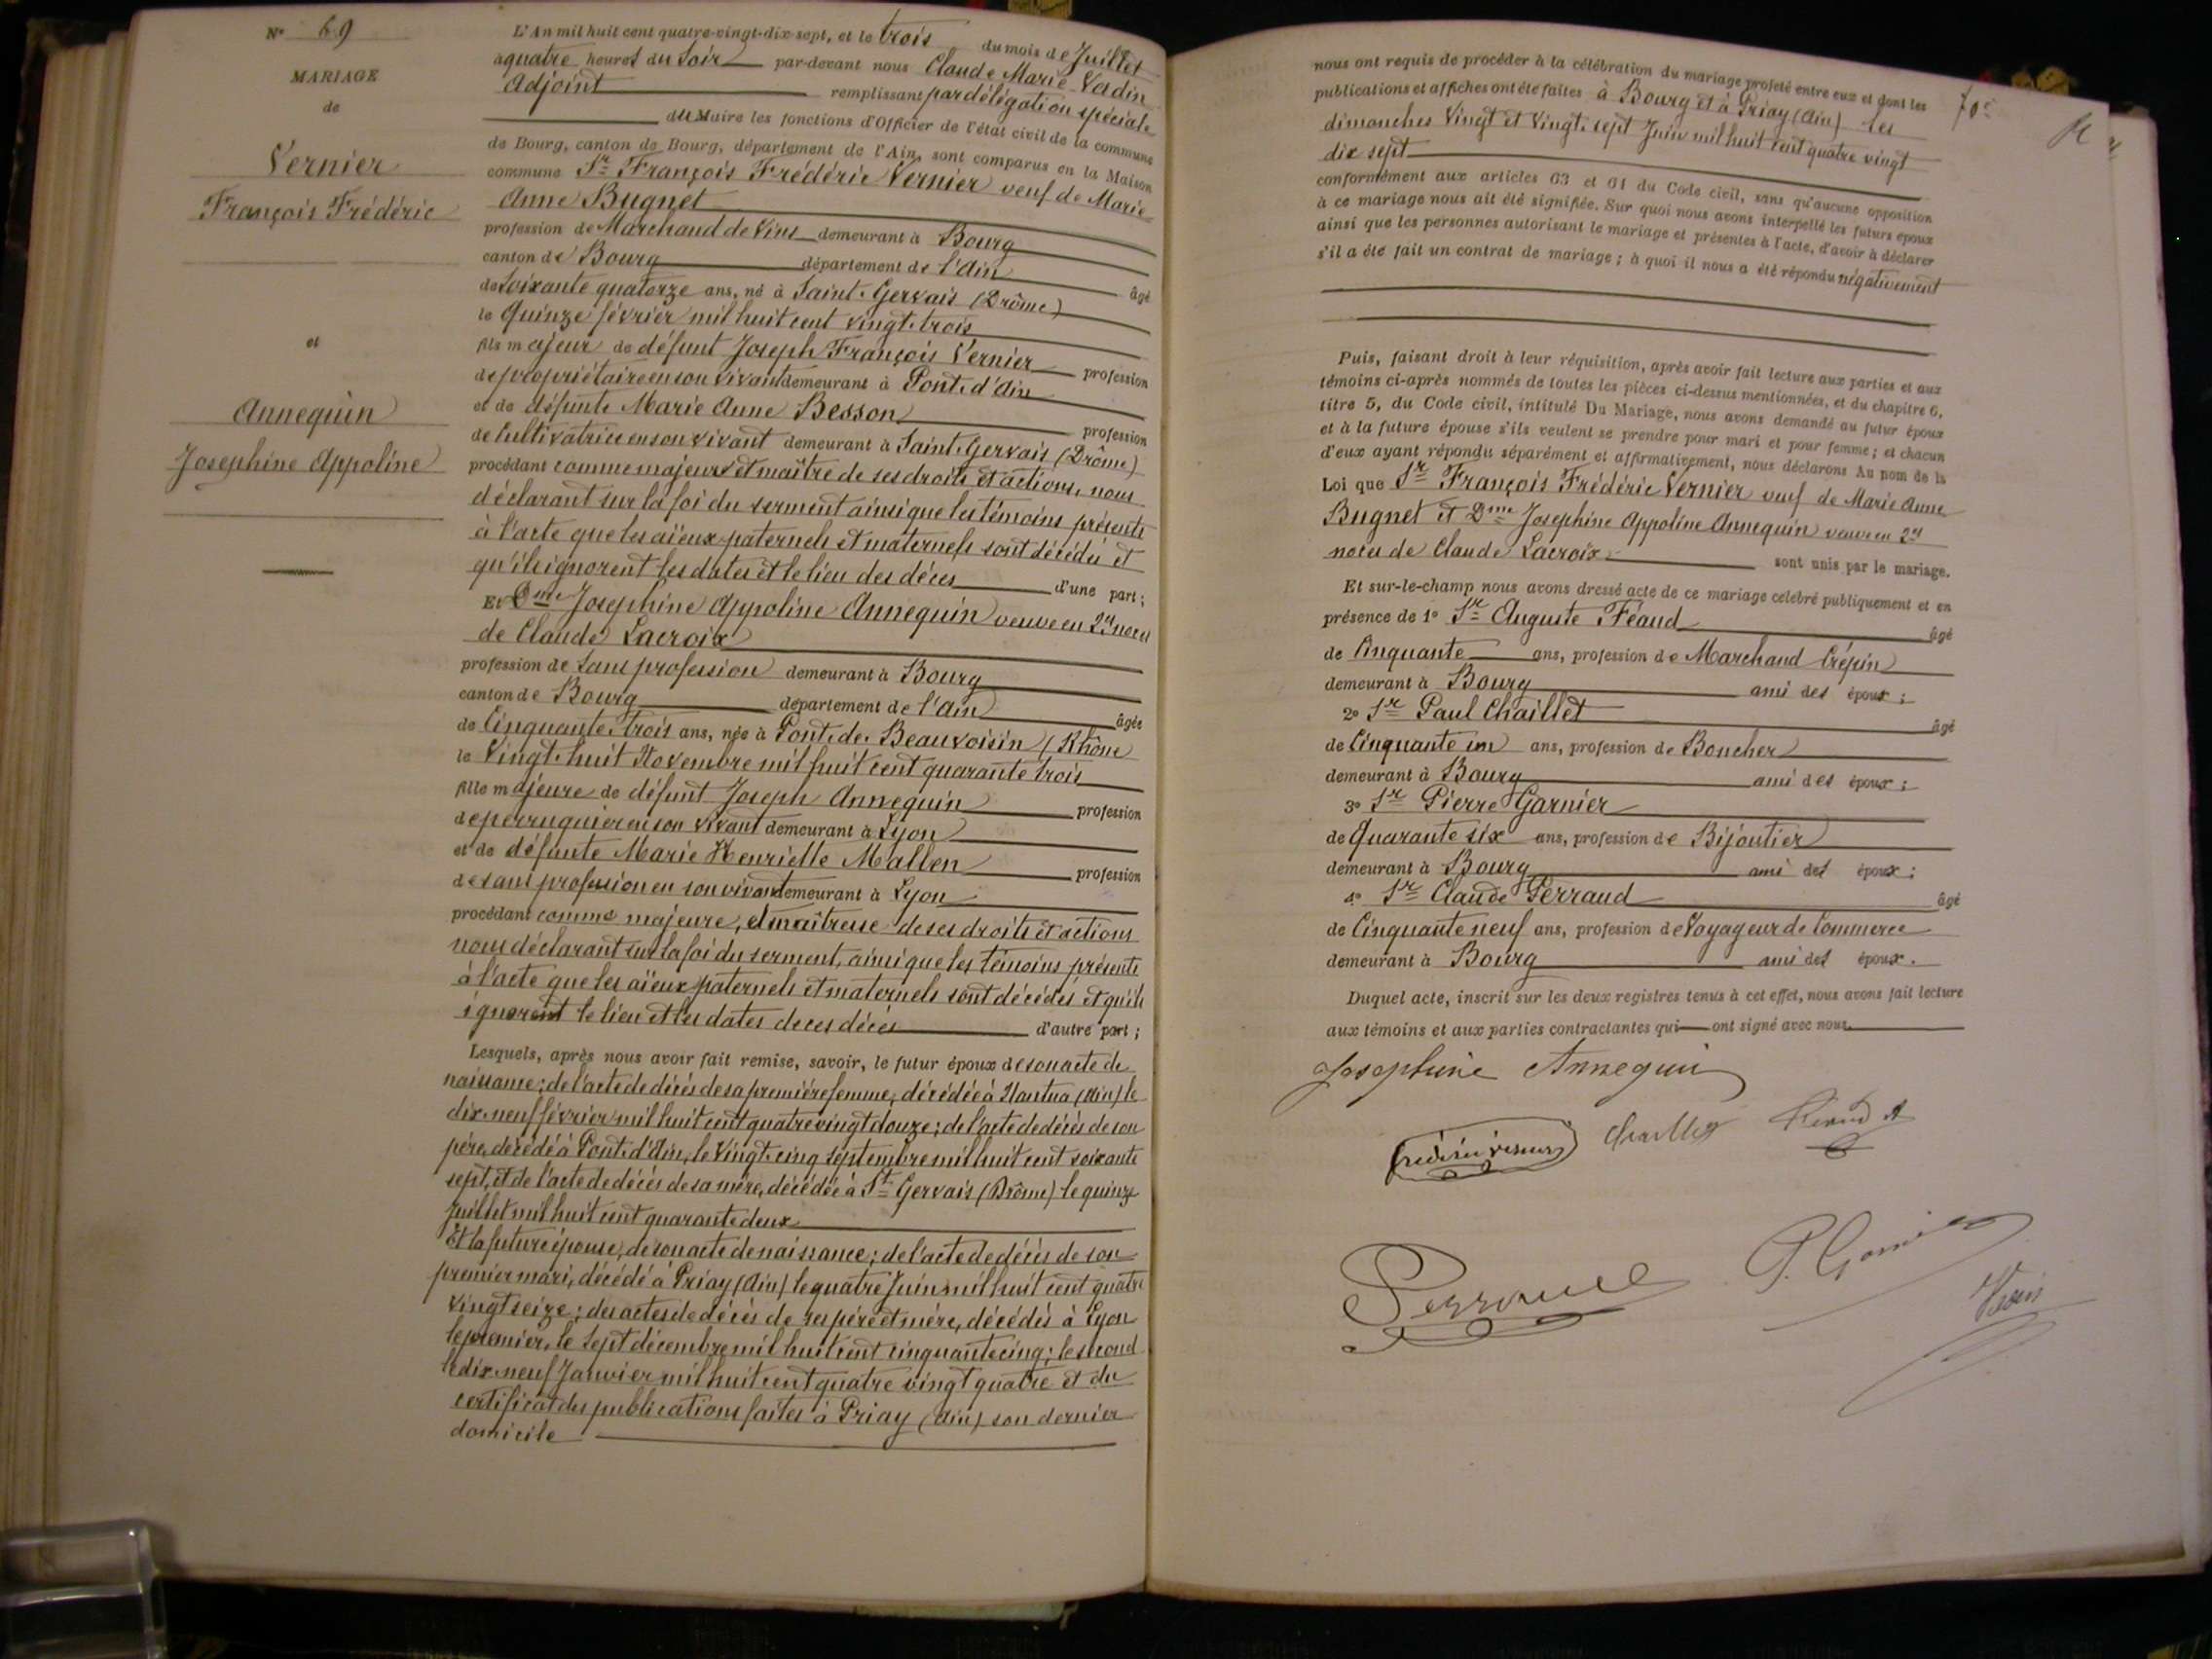 N° 69
MARIAGE
de
Vernier
François Frédéric
et
Annequin
Josephine Appoline
L'An mil huit cent quatre-vingt-dix-sept, et le trois du mois de Juillet
à quatre heures du Soir par-devant nous Claude Marie Verdin
Adjoint remplissant par délégation spéciale
du Maire les fonctions d'Officier de l'état civil de la commune
de Bourg, canton de Bourg, département de l'Ain, sont comparus en la Maison
commune Sr François Frédéric Vernier veuf de Marie
Anne Bugnet
profession de Marchand de Vins demeurant à Bourg
canton de Bourg département de l'Ain âgé
de Soixante quatorze ans, né à Saint-Gervais (Drôme)
le Quinze février mil huit cent vingt-trois
fils majeur de défunt Joseph François Vernier profession
de propriétaire en son vivant demeurant à Pont-d'Ain
et de défunte Marie Anne Besson profession
de Cultivatrice en son vivant demeurant à Saint-Gervais (Drôme)
procédant comme majeur et maître de ses droits et actions, nous
déclarant sur la foi du serment ainsi que les témoins présents
à l'acte que les aïeux paternels et maternels sont décédés et
qu'ils ignorent les dates et le lieu des décès d'une part ;
Et Dme Josephine Appoline Annequin veuve en 2des noces
de Claude Lacroix
profession de Sans profession demeurant à Bourg
canton de Bourg département de l'Ain âgée
de Cinquante trois ans, née à Pont-de-Beauvoisin (Rhône
le Vingt-huit Novembre mil huit cent quarante trois
fille majeure de défunt Joseph Annequin profession
de perruquier en son vivant demeurant à Lyon
et de défunte Marie Henriette Mallen profession
de sans profession en son vivant demeurant à Lyon
procédant comme majeure, et maîtresse de ses droits et actions
nous déclarant sur la foi du serment, ainsi que les témoins présents
à l'acte que les aïeux paternels et maternels sont décédés et qu'ils
ignorent le lieu et les dates de ces décès d'autre part ;
Lesquels, après nous avoir fait remise, savoir, le futur époux de son acte de
naissance ; de l'acte de décès de sa première femme, décédée à Nantua (Ain) le
dix-neuf février mil huit cent quatre vingt douze ; de l'acte de décès de son
père, décédé à Pont-d'Ain, le Vingt-cinq Septembre mil huit cent soixante
sept, et de l'acte de décès de sa mère, décédée à St Gervais (Drôme) le quinze
Juillet mil huit cent quarante deux
Et la future épouse, de son acte de naissance ; de l'acte de décès de son
premier mari, décédé à Priay (Ain) le quatre Juin mil huit cent quatre
vingt seize ; des actes de décès de ses père et mère, décédés à Lyon
le premier, le Sept décembre mil huit cent cinquante cinq ; le second
le dix-neuf Janvier mil huit cent quatre vingt quatre et du
certificat des publications faites à Priay (Ain) son dernier
domicile
nous ont requis de procéder à la célébration du mariage projeté entre eux et dont les
publications et affiches ont été faites à Bourg et à Priay (Ain) les
dimanches Vingt et Vingt-sept Juin mil huit cent quatre vingt
dix sept
conformément aux articles 63 et 64 du Code civil, sans qu'aucune opposition
à ce mariage nous ait été signifiée. Sur quoi nous avons interpellé les futurs époux
ainsi que les personnes autorisant le mariage et présentes à l'acte, d'avoir à déclarer
s'il a été fait un contrat de mariage ; à quoi il nous a été répondu négativement
Puis, faisant droit à leur réquisition, après avoir fait lecture aux parties et aux
témoins ci-après nommés de toutes les pièces ci-dessus mentionnées, et du chapitre 6,
titre 5, du Code civil, intitulé Du Mariage, nous avons demandé au futur époux
et à la future épouse s'ils veulent se prendre pour mari et pour femme ; et chacun
d'eux ayant répondu séparément et affirmativement, nous déclarons Au nom de la
Loi que Sr François Frédéric Vernier veuf de Marie Anne
Bugnet et Dme Josephine Appoline Annequin veuve en 2des
noces de Claude Lacroix sont unis par le mariage.
Et sur-le-champ nous avons dressé acte de ce mariage célébré publiquement et en
présence de 1° Sr Auguste Féaud âgé
de Cinquante ans, profession de Marchand Crépin
demeurant à Bourg ami des époux ;
2° Sr Paul Chaillet âgé
de Cinquante un ans, profession de Boucher
demeurant à Bourg ami des époux ;
3° Sr Pierre Garnier
de Quarante six ans, profession de Bijoutier
demeurant à Bourg ami des époux ;
4° Sr Claude Perraud âgé
de Cinquante neuf ans, profession de Voyageur de Commerce
demeurant à Bourg ami des époux.
Duquel acte, inscrit sur les deux registres tenus à cet effet, nous avons fait lecture
aux témoins et aux parties contractantes qui ont signé avec nous.
Josephine Annequin
Chaillet
Perraud
P. Garnier